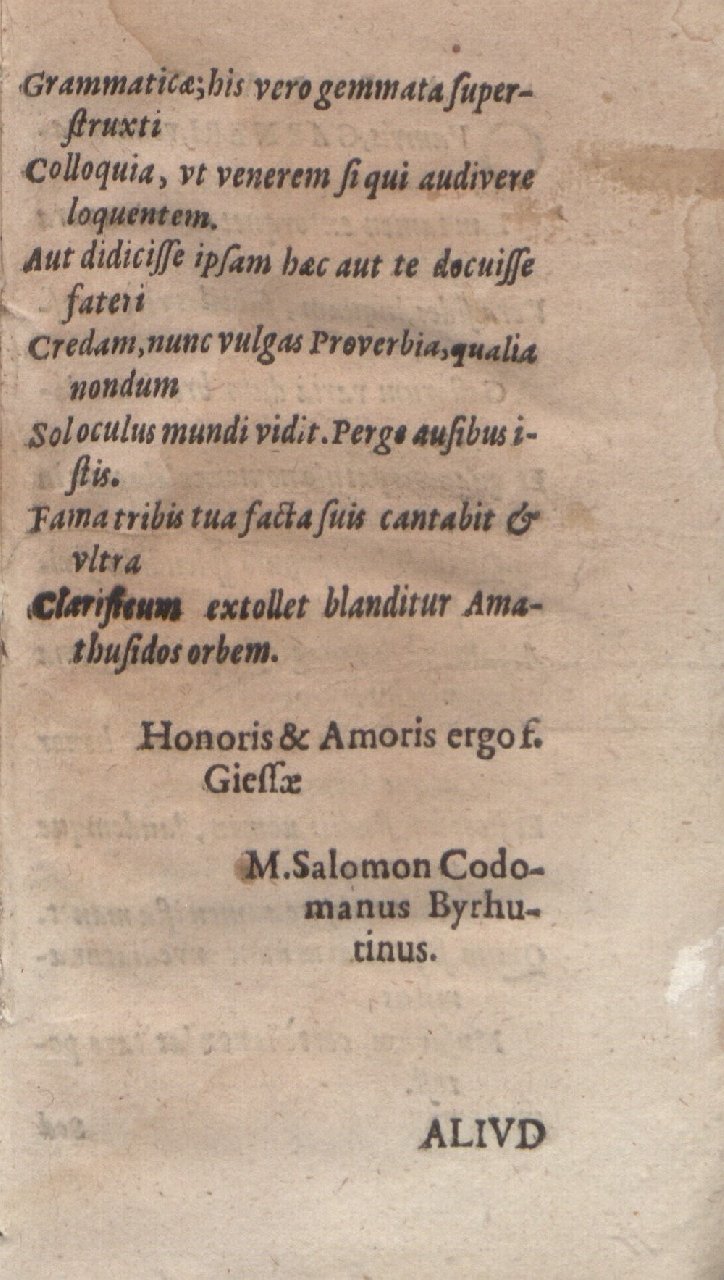 Grammaticæ; his vero gemmata ſuper-
ſtruxti
Colloquia, vt venerem ſi qui audivere
loquentem.
Aut didiciſſe ipſam hæc aut te docuiſſe
fateri
Credam, nunc vulgas Proverbia, qualia
nondum
Sol oculus mundi vidit. Perge auſibus i-
ſtis.
Fama tribis tua facta ſuis cantabit &
vltra
Clarificum extollet blanditur Ama-
thuſidos orbem.
Honoris & Amoris ergo f.
Gieſſæ
M. Salomon Codo-
manus Byrhu-
tinus.
ALIVD